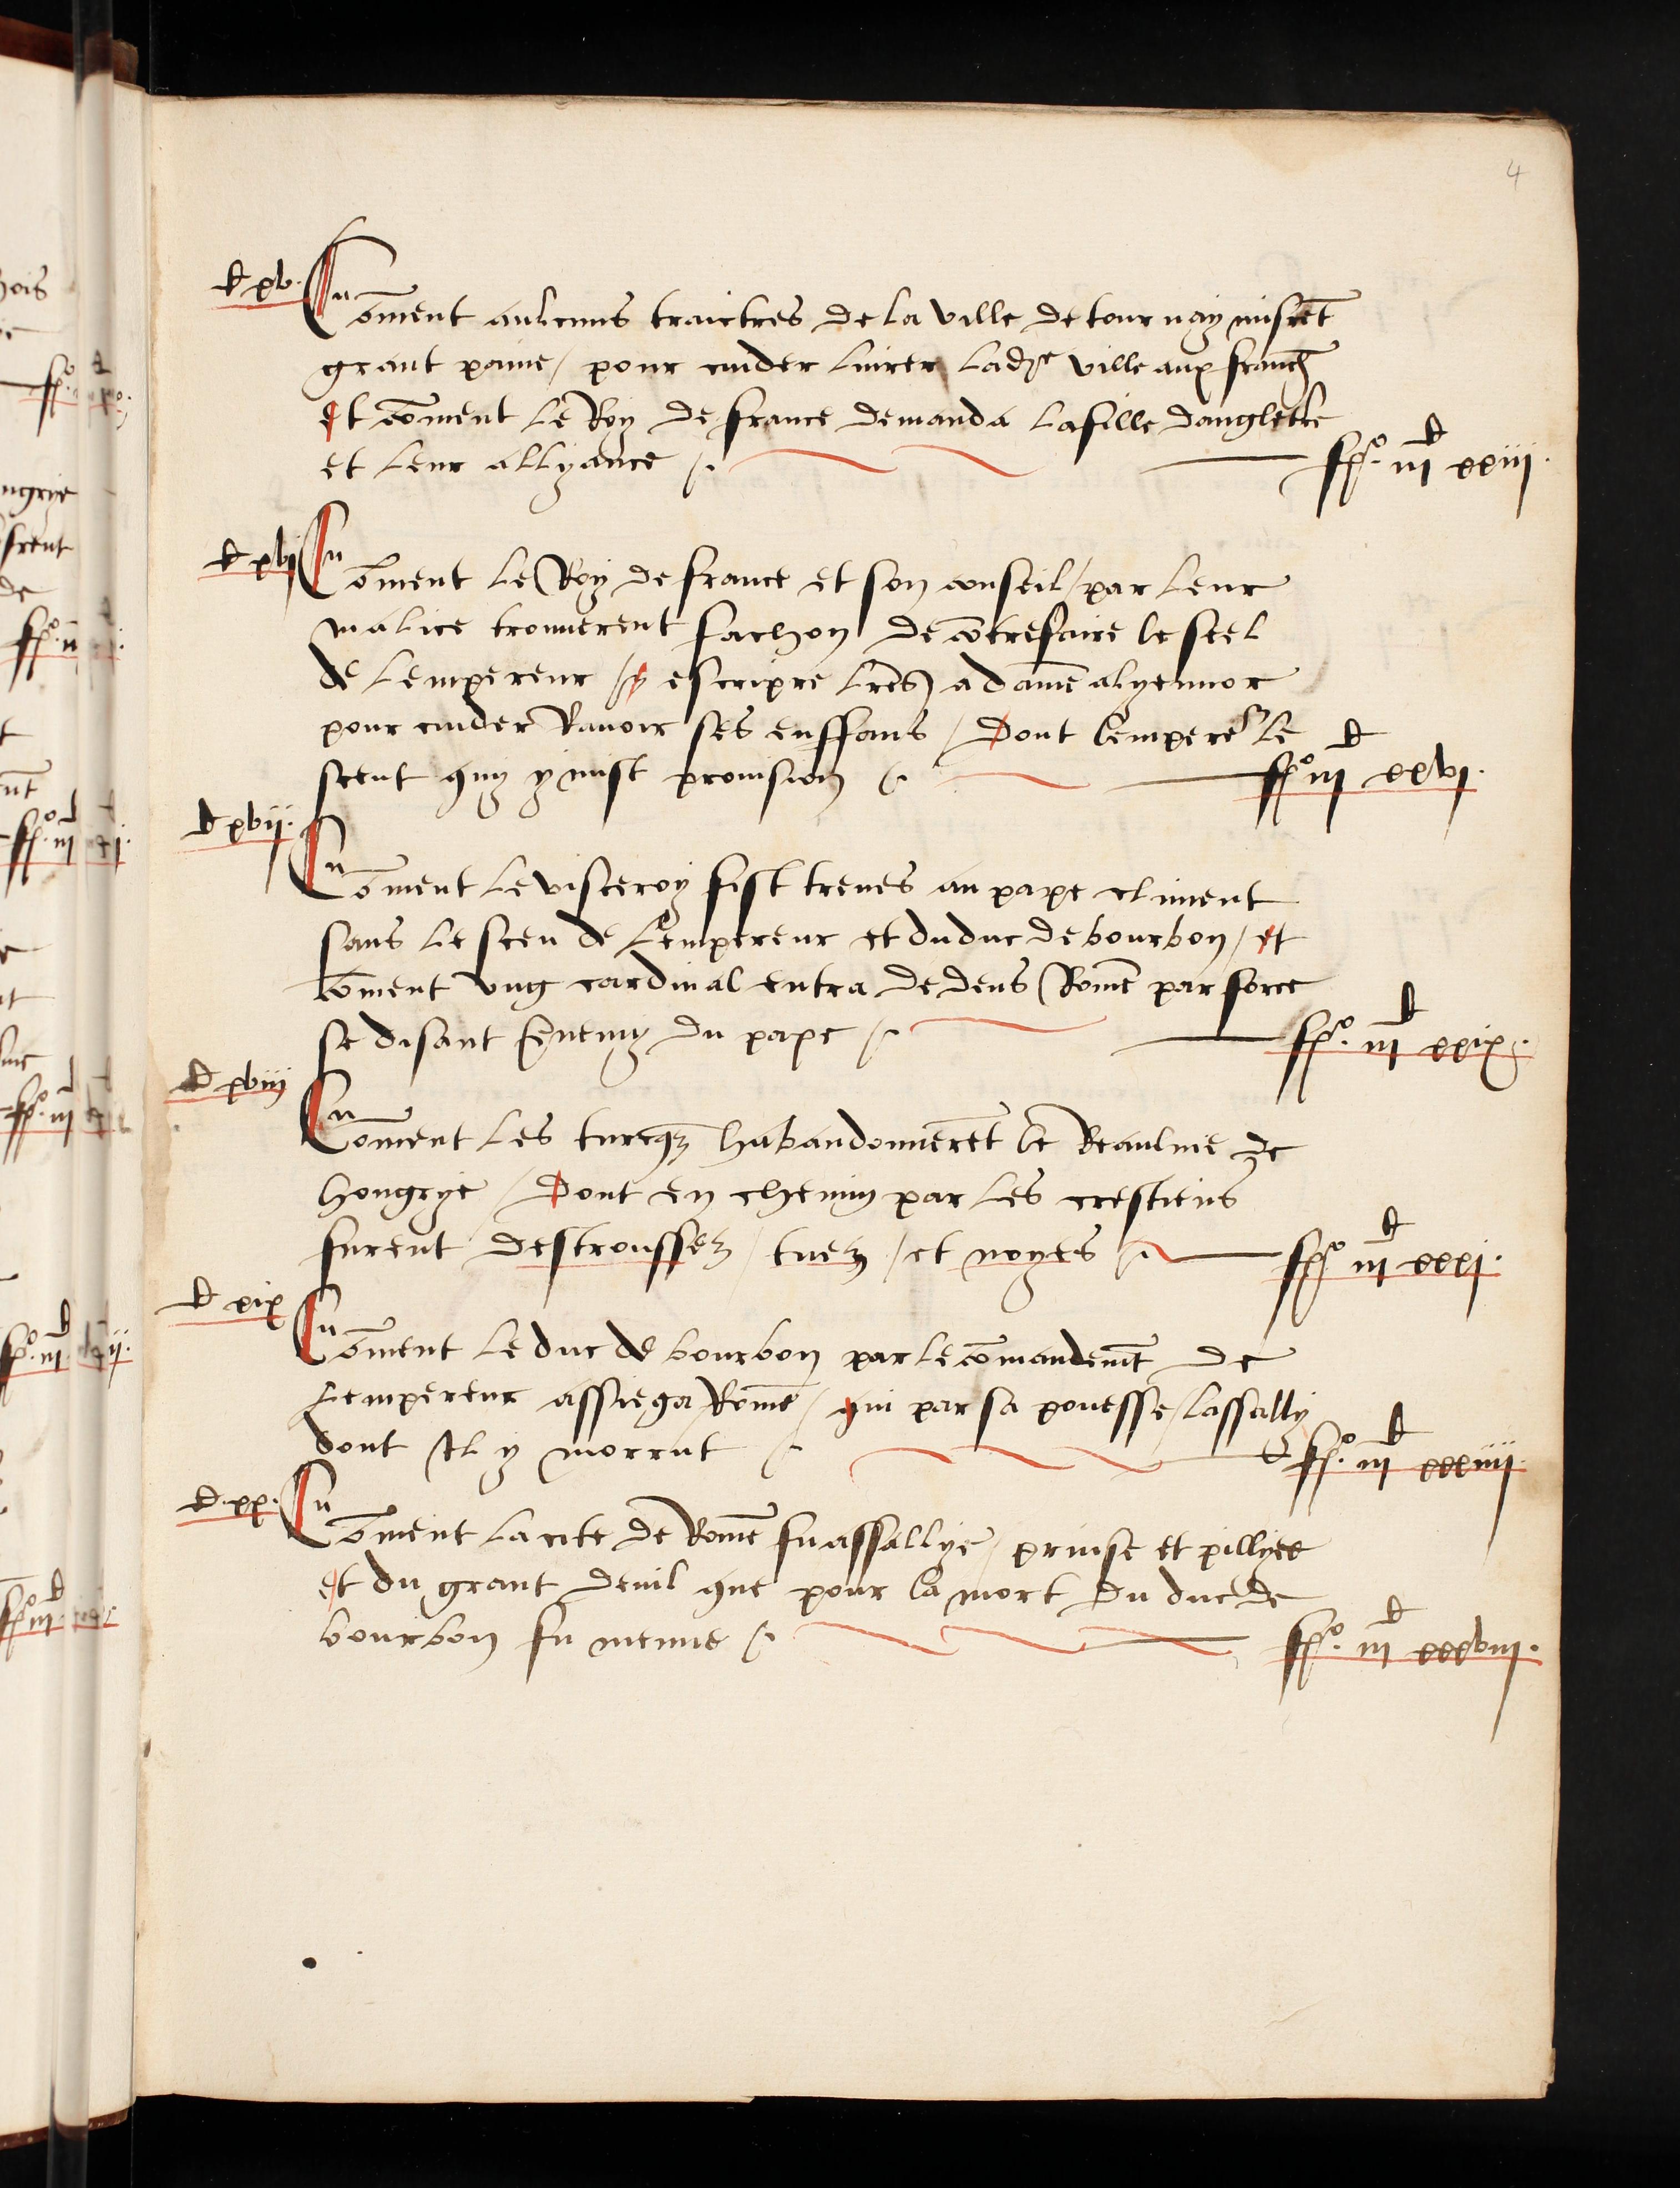 4
d xv.
Com̄ent aulcuns traictres de la ville de tournay misrēt
grant paine / pour cuider livrer lad.te ville aux franch
et cōment le Roy de france demanda la fille dangletre
et leur allyance /. fo. iii d xxiii.
d xvi
Cōment le Roy de france et son conseil / par leur
malice trouverent fachon de cōtrefaire le seel
de lempereur / escripre lrēs a dame alyennor
pour cuider Ravoir ses enffans / Dont lempereur le
sceut quy y mist provision /. fo iii d xxvi.
d xvii.
Cōment le visceroy fist treves au pape climent
sans le sceu de Lempereur et du duc de bourbon / et
cōment ung cardinal entra dedens Rome par force
se disant Ennemy du pape /. fo. iii d xxix.
d xviii
Coment les turcqz habandonnerēt le Reaulme de
hongrye / Dont en chemin par les crestiens
furent destroussez / tuez / et noyes /. fo iii d xxxi.
d xix
Cōment le duc de bourbon par le cōmandemēt de
Lempereur assiega Rome / qui par sa pouesse / lassally
dont Il y morrut /. fo. iii d xxxiiii
d xx.
Cōment la cite de Rome fu assallye / prinse et pillyee
et du grant deuil que pour la mort du duc de
bourbon fu menne /. fo. iii d xxxviii.